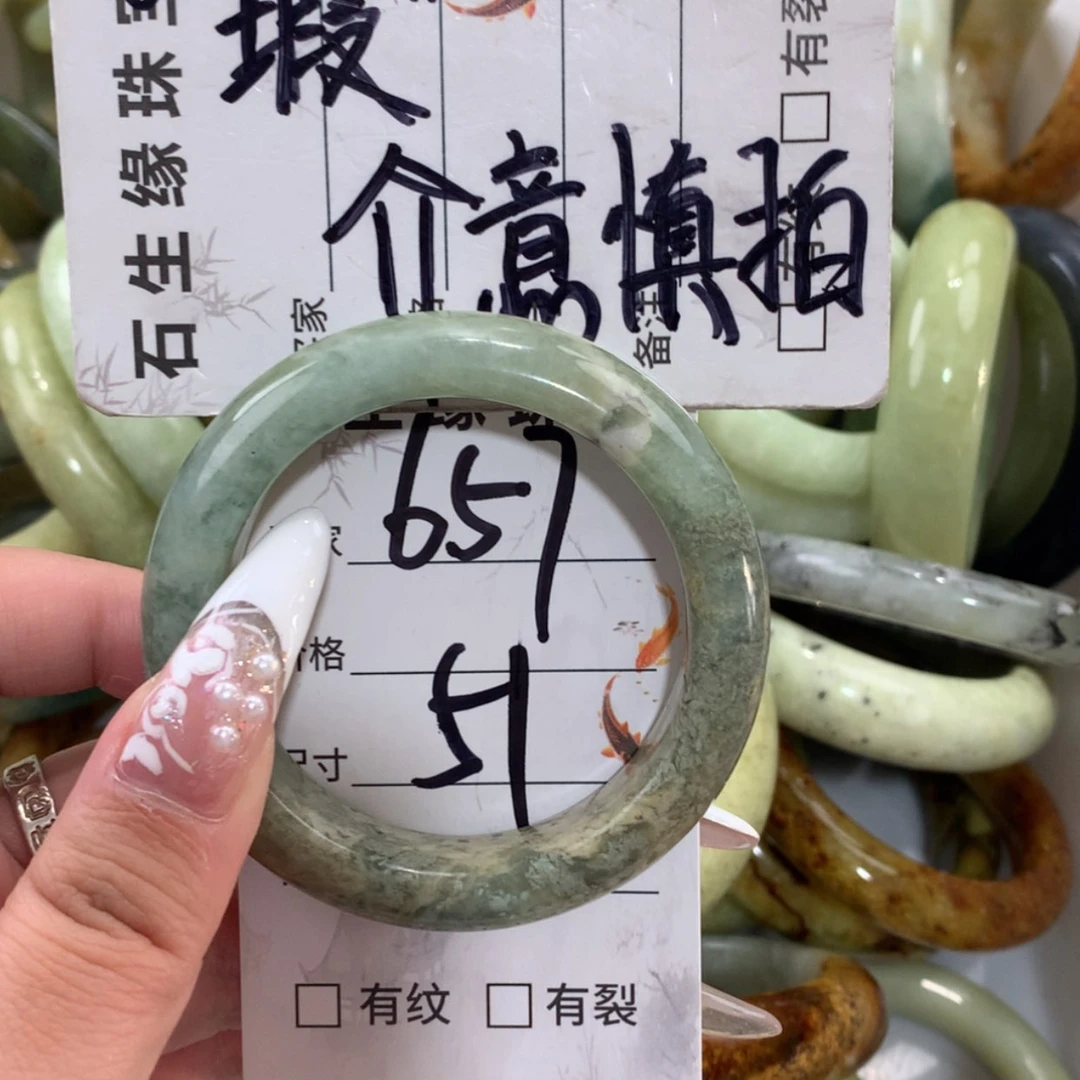 瑕
介意慎拍
石生缘珠宝
有裂
备注
657
价格
51
尺寸
有纹 有裂